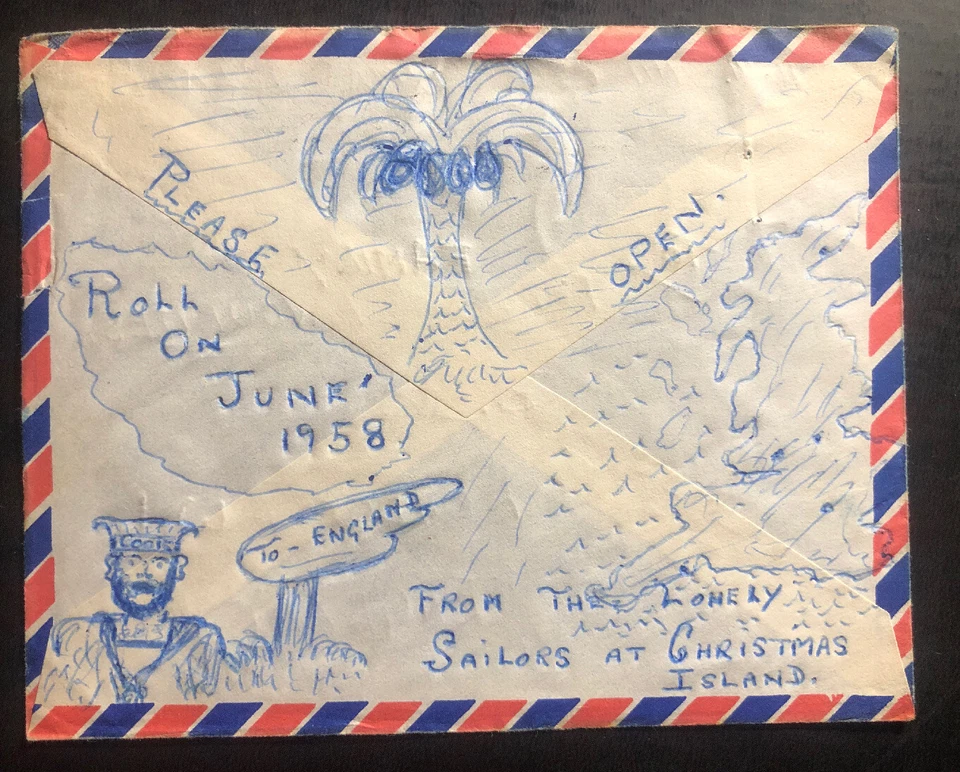 PLEASE
OPEN.
ROLL
ON
JUNE'
1958
COOK
TO - ENGLAND
FROM THE LONELY
SAILORS AT CHRISTMAS
ISLAND.